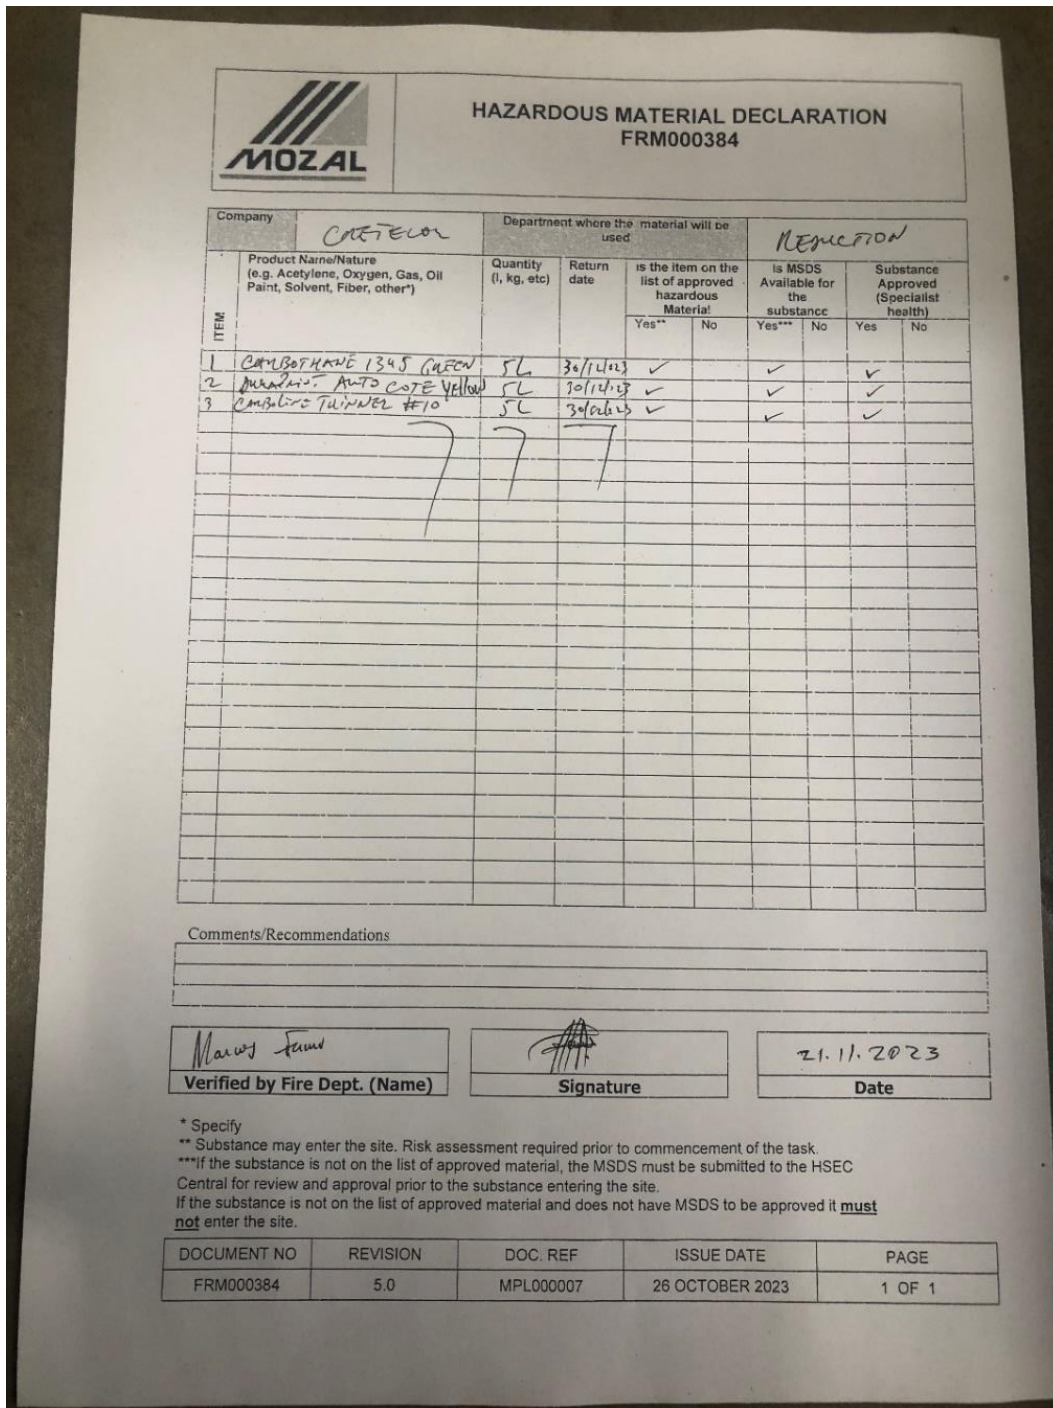 MOZAL
HAZARDOUS MATERIAL DECLARATION
FRM000384
Company
CRETECOR
Department where the material will be used
REDUCTION
ITEM
Product Name/Nature
(e.g. Acetylene, Oxygen, Gas, Oil
Paint, Solvent, Fiber, other*)
Quantity
(l, kg, etc)
Return
date
is the item on the
list of approved
hazardous
Material
Is MSDS
Available for
the
substance
Substance
Approved
(Specialist
health)
Yes** No Yes*** No Yes No
1 CARBOTHANE 1345 GREEN 5L 30/12/023 ✓ ✓ ✓
2 AUTO COTE YELLOW 5L 30/12/23 ✓ ✓ ✓
3 CARBOLINE THINNER #10 5L ✓ ✓ ✓
Comments/Recommendations
Marcos
21.11.2023
Verified by Fire Dept. (Name) Signature Date
* Specify
** Substance may enter the site. Risk assessment required prior to commencement of the task.
***If the substance is not on the list of approved material, the MSDS must be submitted to the HSEC
Central for review and approval prior to the substance entering the site.
If the substance is not on the list of approved material and does not have MSDS to be approved it must
not enter the site.
DOCUMENT NO REVISION DOC. REF ISSUE DATE PAGE
FRM000384 5.0 MPL000007 26 OCTOBER 2023 1 OF 1